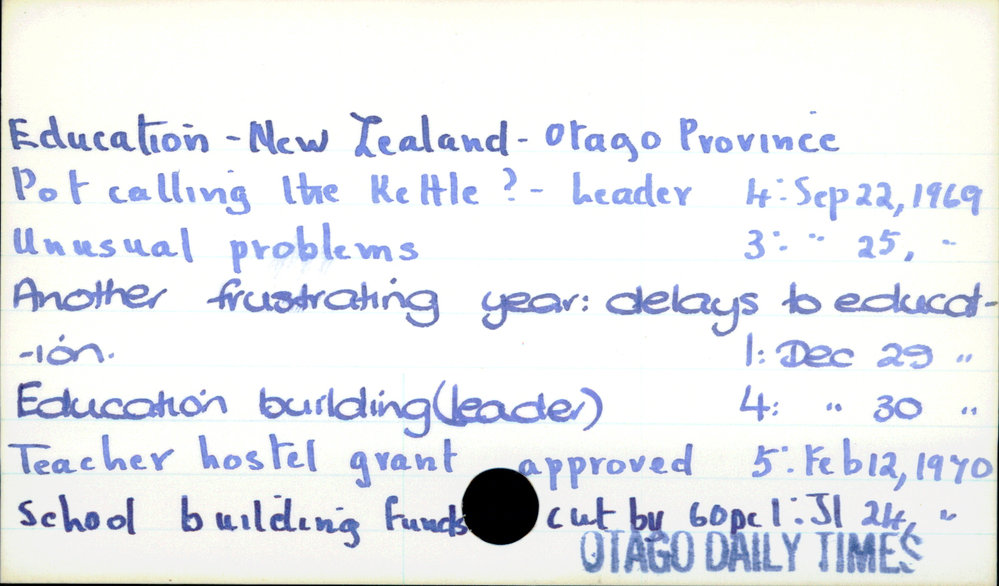 Education - New Zealand - Otago Province
Pot calling the Kettle ? - Leader 4: Sep 22, 1969
Unusual problems 3: " 25, "
Another frustrating year: delays to educat-
-ion. 1: Dec 29 "
Education building (leader) 4: " 30 "
Teacher hostel grant approved 5: Feb 12, 1970
School building funds cut by 60pc 1: Jl 24, "
OTAGO DAILY TIMES